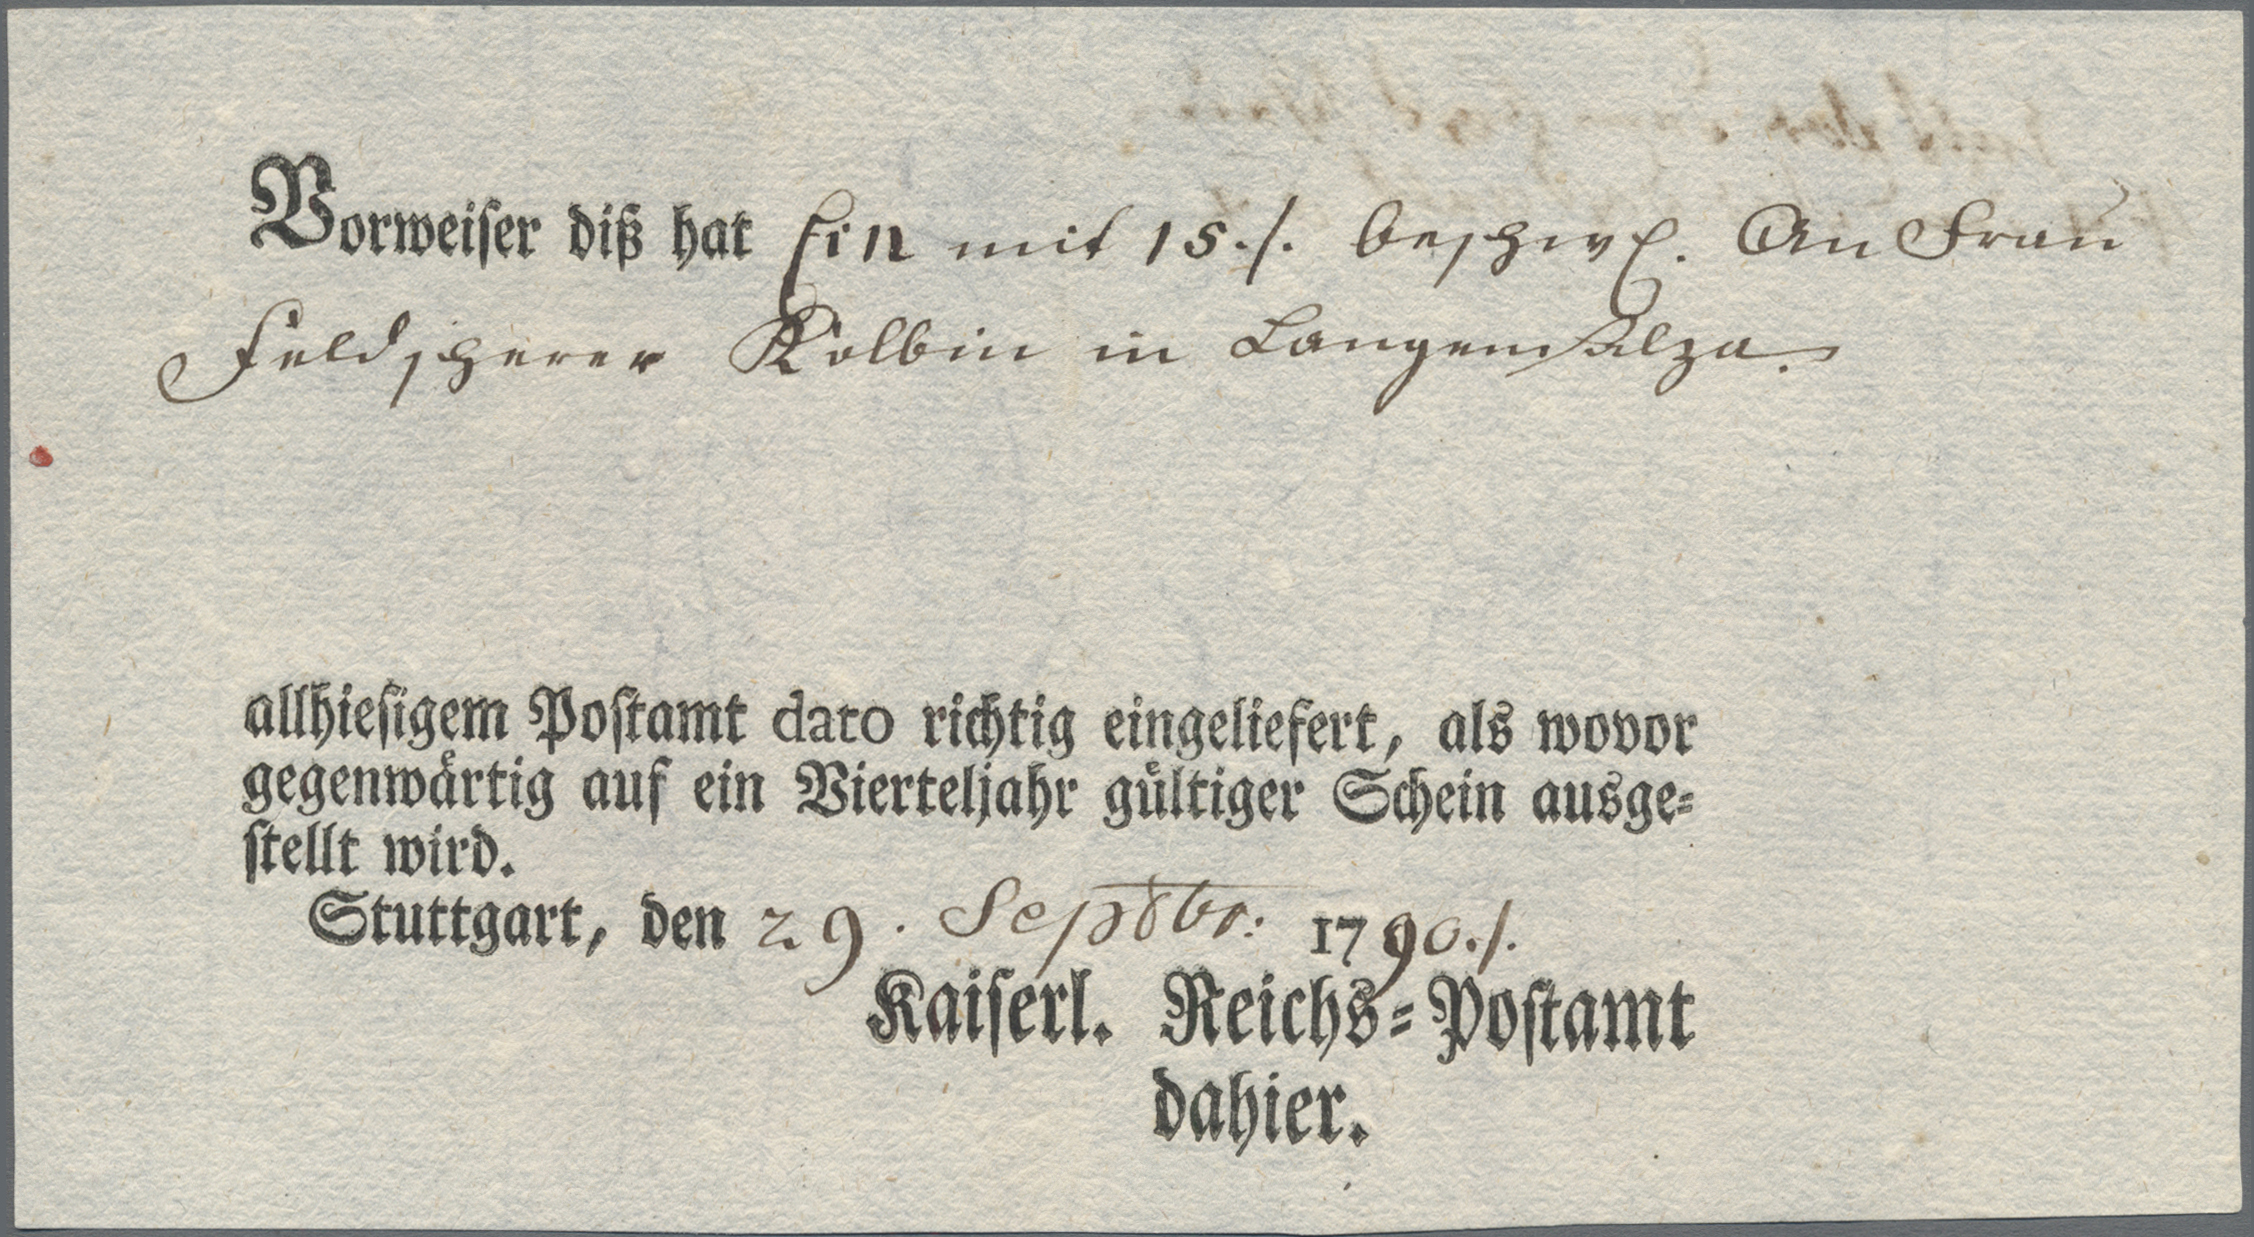 Vorweiser diß hat Ein mit 15./. beschwl. An Frau
Feldscherer Kolbin in Langensalza.
allhiesigem Postamt dato richtig eingeliefert, als wovor
gegenwärtig auf ein Vierteljahr gültiger Schein ausge-
stellt wird.
Stuttgart, den 29. Sept8br: 1790./.
Kaiserl. Reichs-Postamt
dahier.